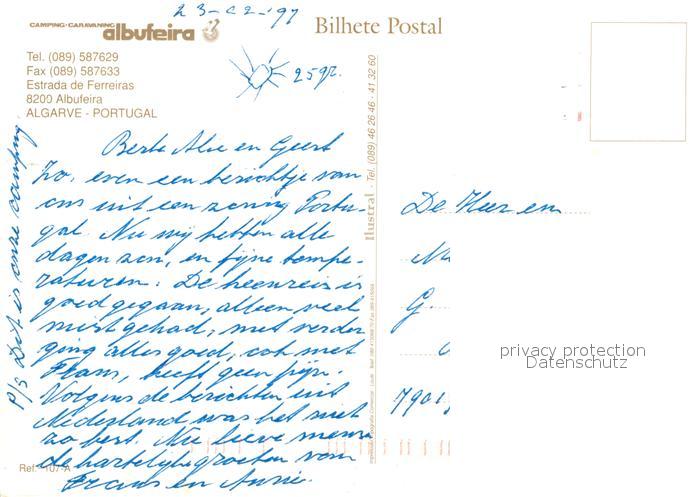 23-02-'97
CAMPING-CARAVANING
albufeira
Bilhete Postal
Tel. (089) 587629
Fax (089) 587633
Estrada de Ferreiras
8200 Albufeira
ALGARVE - PORTUGAL
25 gr.
Beste Alie en Geert
Zo, even een berichtje van
ons uit een zonnig Portu-
gal. Nu wij hebben alle
dagen zon, en fijne tempe-
raturen. De heenreis is
goed gegaan, alleen veel
mist gehad, met verder
ging alles goed, ook met
Frans, heeft geen pijn.
Volgens de berichten uit
Nederland was het niet
zo best. Nu lieve mensen
de hartelijke groeten van
Frans en Annie.
P/s Dit is onze camping
Ilustral - Tel. (089) 46 26 46 - 41 32 60
De Heer en
G.
7901
privacy protection
Datenschutz
Ref. 107-A